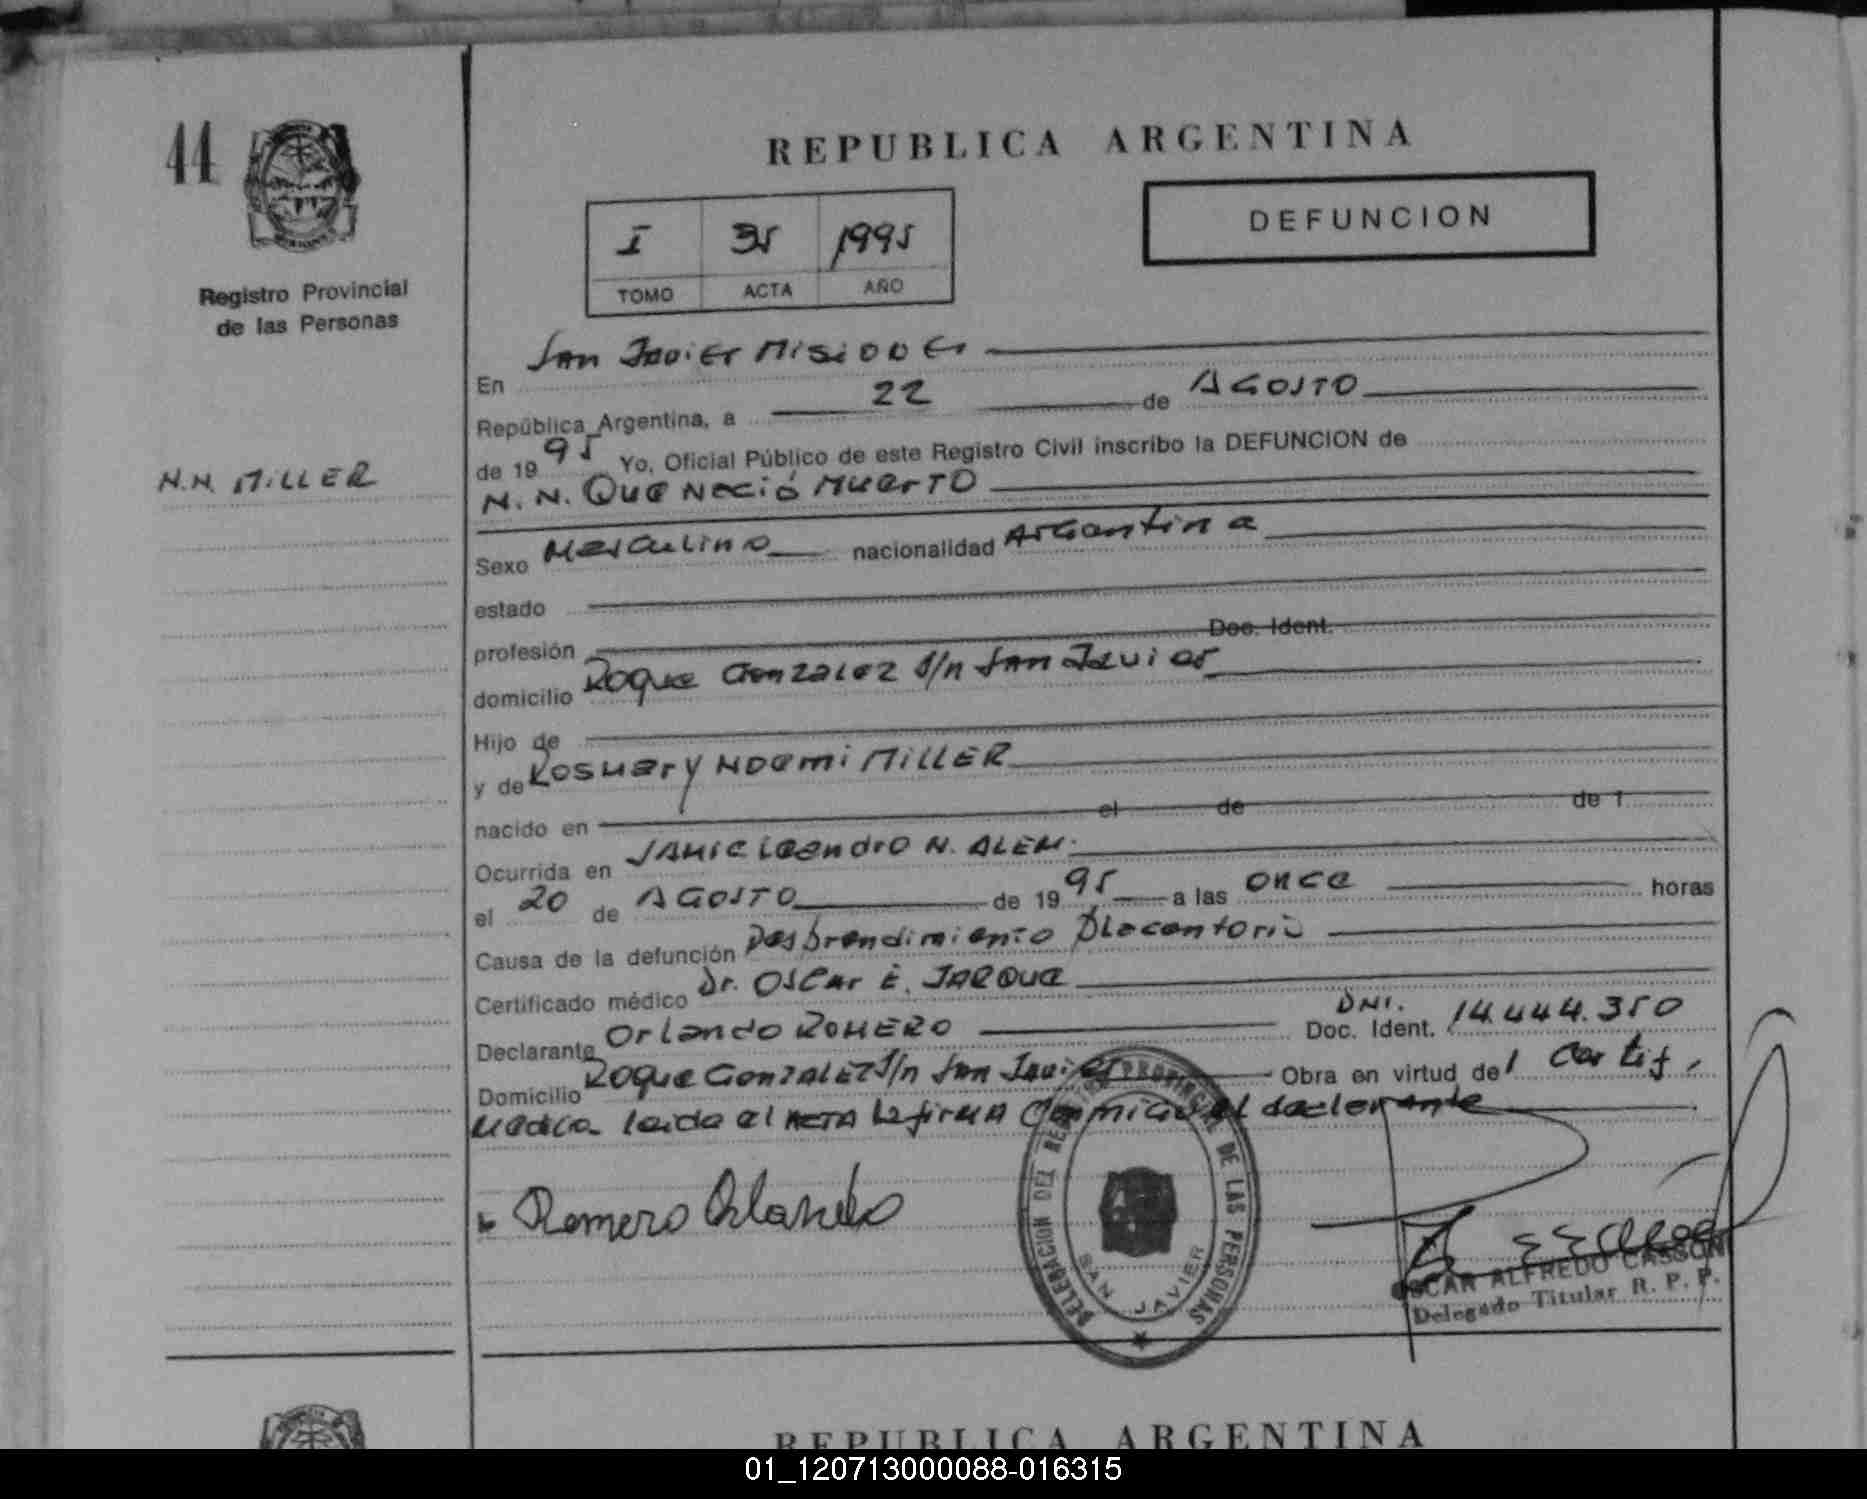 44
REPUBLICA ARGENTINA
I 35 1995
TOMO ACTA AÑO
DEFUNCION
Registro Provincial
de las Personas
N.N. MILLER
En San Javier Misiones
República Argentina, a 22 de AGOSTO
de 1995 Yo, Oficial Público de este Registro Civil inscribo la DEFUNCION de
N.N. Que Nació Muerto
Sexo Masculino nacionalidad Argentina
estado
profesión Doc. Ident.
domicilio Roque Gonzalez s/n San Javier
Hijo de
y de Rosmary Noemi MILLER
nacido en el de de 1
Ocurrida en SAMIC Leandro N. ALEM.
el 20 de AGOSTO de 1995 a las once horas
Causa de la defunción Desprendimiento Placentorio
Certificado médico Dr. Oscar E. JARQUE
Declarante Orlando ROMERO Doc. Ident. DNI. 14.444.350
Domicilio Roque Gonzalez s/n San Javier Obra en virtud del Certif.
Medico leida el ACTA la firma Conmigo el declarante
Romero Orlando
DELEGACION DEL REGISTRO PROVINCIAL DE LAS PERSONAS
SAN JAVIER
OSCAR ALFREDO CASSONI
Delegado Titular R. P. P.
REPUBLICA ARGENTINA
01_120713000088-016315